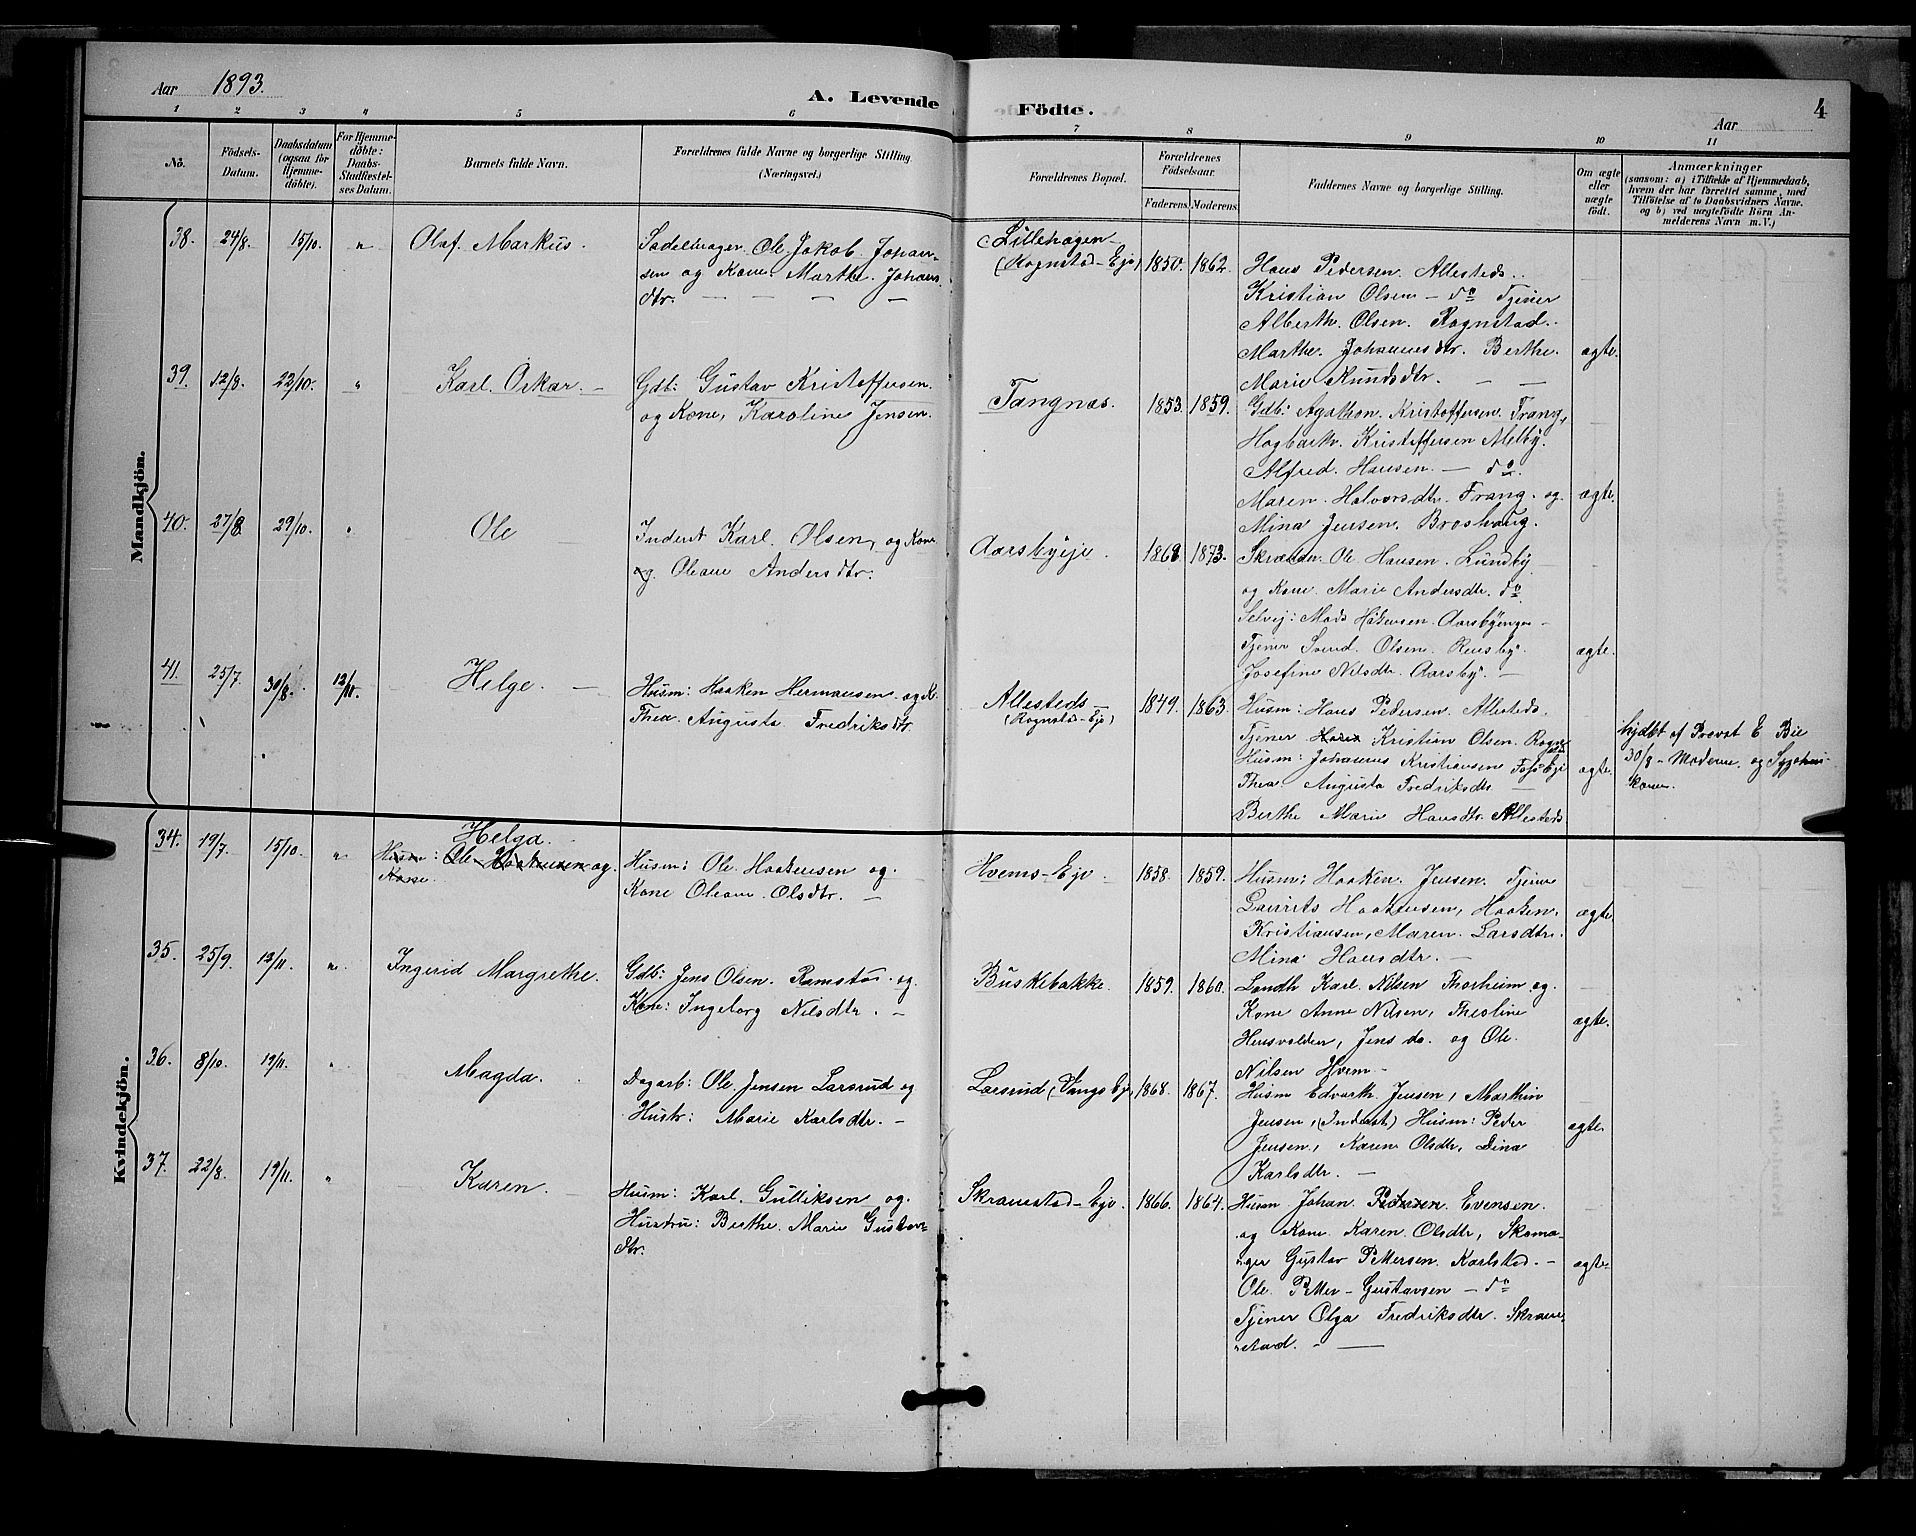 Aar 1893.
A. Levende Födte.
Aar
4
1 2 3 4 5 6 7 8 9 10 11
No.
Födsels-Datum.
Daabsdatum (ogsaa for Hjemmedöbte).
For Hjemmedöbte: Daabs-Stadfæstelses Datum.
Barnets fulde Navn.
Forældrenes fulde Navne og borgerlige Stilling. (Næringsvei.)
Forældrenes Bopæl.
Forældrenes Födselsaar.
Faderens. Moderens.
Faddernes Navne og borgerlige Stilling.
Om ægte eller uægte født.
Anmærkninger
(saasom: a) i Tilfælde af Hjemmedaab,
hvem der har forrettet samme, med
Tilföielse af to Daabsvidners Navne.
og b) ved uægtefödte Börn Anmelderens Navn m. V.)
Mandkjön.
38. 24/8. 15/10. " Olaf Markus.
Sadelmager Ole Jakob Johansen
og Kone Marthe Johans
dtr. — — — —
Lillehagen
(Rognstad-Eje)
1850. 1862.
Hans Pedersen Allesteds.
Kristian Olsen — do Tjener
Alberth. Olsen. Rognstad.
Marthe. Johannesdtr. Berthe.
Marie Knudsdtr. — —
ægte.
39. 12/8. 22/10. " Karl. Oskar. —
Gdb: Gustav Kristoffersen.
og Kone, Karoline Jensen.
Tangnæs. 1853. 1859.
Gdb: Agathon. Kristoffersen. Frang,
Hagbarth. Kristoffersen Melby.
Alfred. Hansen. — do.
Maren. Halvorsdtr. Frang. og
Mina Jensen. Broshaug.
ægte.
40. 27/8 29/10. " Ole
Inderst Karl. Olsen, og Kone
og. Oleane Andersdtr.
Aarsbyeje. 1868 1873.
Skrædder Ole Hansen. Lundby
og Kone. Marie Andersdtr. do
Selvej: Mads Håkensen. Aarsbyenge
Tjener Svend. Olsen. Rensby.
Josefine Nilsdtr. Aarsby.
ægte.
41. 25/7. 30/8. 12/11. Helge. —
Husm: Haaken Hermansen. og K.
Thea. Augusta Fredriksdtr.
Allesteds —
(Rognstad-Eje)
1849. 1863.
Husm: Hans Pedersen. Allesteds.
Tjener Hans Kristian Olsen.
Husm: Johannes Kristiansen
Thea Augusta Fredriksdtr. —
Berthe Marie Hansdtr Allesteds
ægte.
hjdbt af Provst E Bie
30/8 - Moderen og
konen.
Kvindekjön.
34. 19/7. 15/10. " Helga.
Husm: Ole Haakensen og
Kone.
Husm: Ole Haakensen og
Kone Oleane Olsdtr. —
Hvems-Eje. 1858. 1859.
Husm: Haaken Jensen. Tjener
Laurits Haakensen, Haaken
Kristiansen, Maren Larsdtr.
Mina Hansdtr. —
ægte.
35. 25/9. 12/11. " Ingerid Margrethe.
Gdb: Jens Olsen. Ramstad og
Kone: Ingeborg Nilsdtr. —
Buskebakke. 1859. 1860.
Landh Karl. Nilsen Thorheim og
Kone Anne Nilsen, Thestine
Husvolden, Jens do. og Ole
Nilsen Hvem —
ægte.
36. 8/10. 19/11. " Magda.
Dagarb: Ole Jensen Larsrud og
Hustr: Marie Karlsdtr. —
Larsrud (Vangs Eje) 1868. 1867.
Husm Edvarth Jensen, Marthin
Jensen, (Inderst) Husm: Peder
Jensen, Karen Olsdtr, Dina
Karlsdtr. —
ægte.
37. 22/8. 19/11. " Karen. —
Husm: Karl. Gulliksen og
Hustru: Berthe Marie Gustavs-
dtr.
Skramstad-Eje. 1866. 1864.
Husm Johan Pedersen Evensen.
og Kone Karen Olsdtr, Skoma-
ger Gustav Pettersen. Karlstad. —
Ole Petter Gustavsen — do
Tjener Olga Fredriksdtr. Skram-
stad. —
ægte.